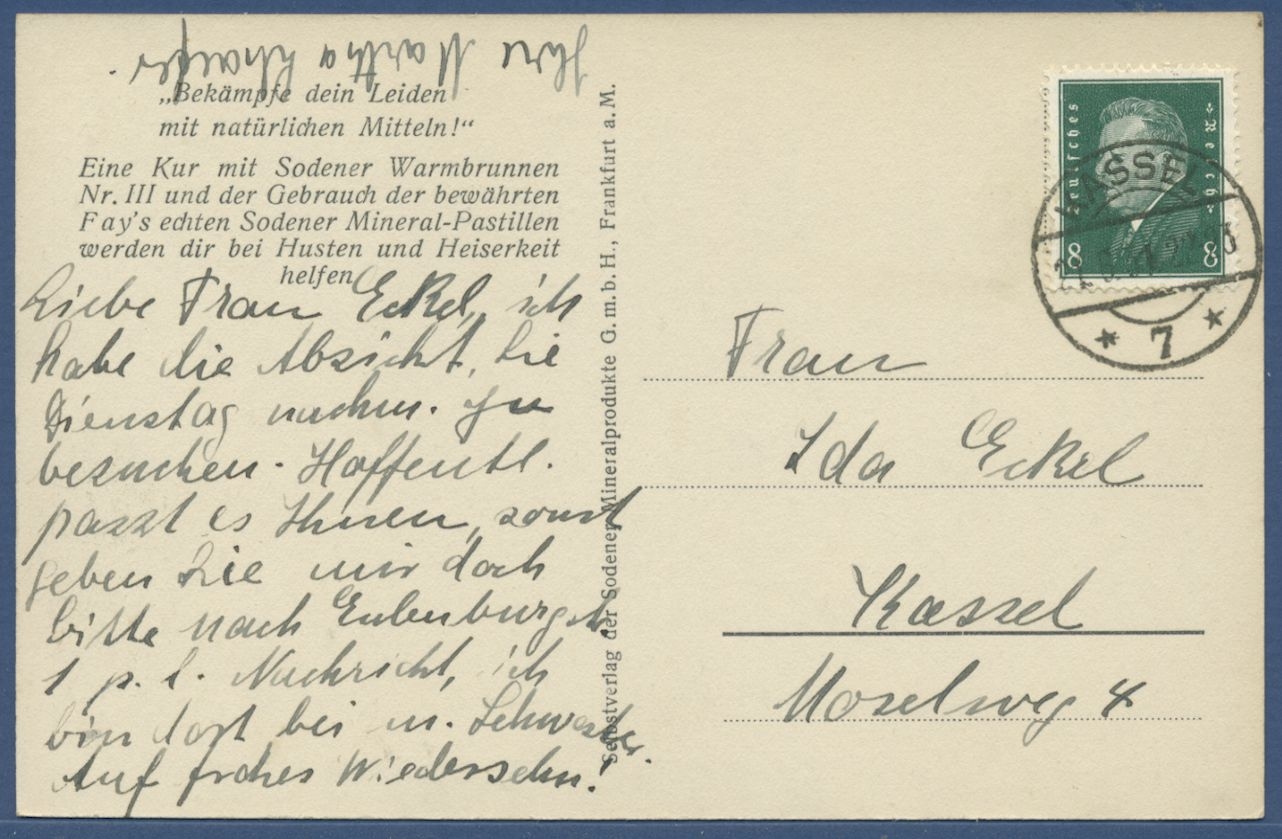 „Bekämpfe dein Leiden
mit natürlichen Mitteln!“
Eine Kur mit Sodener Warmbrunnen
Nr. III und der Gebrauch der bewährten
Fay's echten Sodener Mineral-Pastillen
werden dir bei Husten und Heiserkeit
helfen
Liebe Frau Eckel, ich
habe die Absicht, Sie
Dienstag nachm. zu
besuchen. Hoffentl.
passt es Ihnen, sonst
geben Sie mir doch
bitte nach Eulenburgstr.
1 p. l. Nachricht, ich
bin dort bei m. Schwester.
Auf frohes Wiedersehn!
Ihre Martha
Selbstverlag der Sodener Mineralprodukte G. m. b. H., Frankfurt a. M.
Deutsches Reich
8 8
KASSEL
* 7 *
Frau
Ida Eckel
Kassel
Moselweg 4